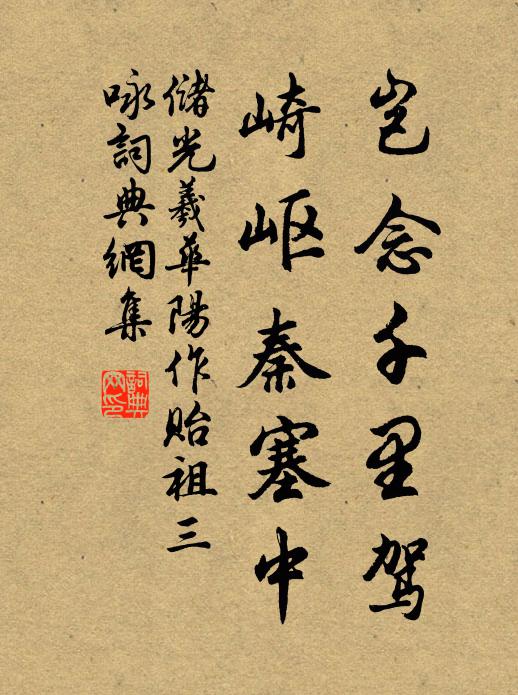 豈念千里駕
崎岖秦塞中
儲光羲華陽作貽祖三
咏詞典網集
詞典网印